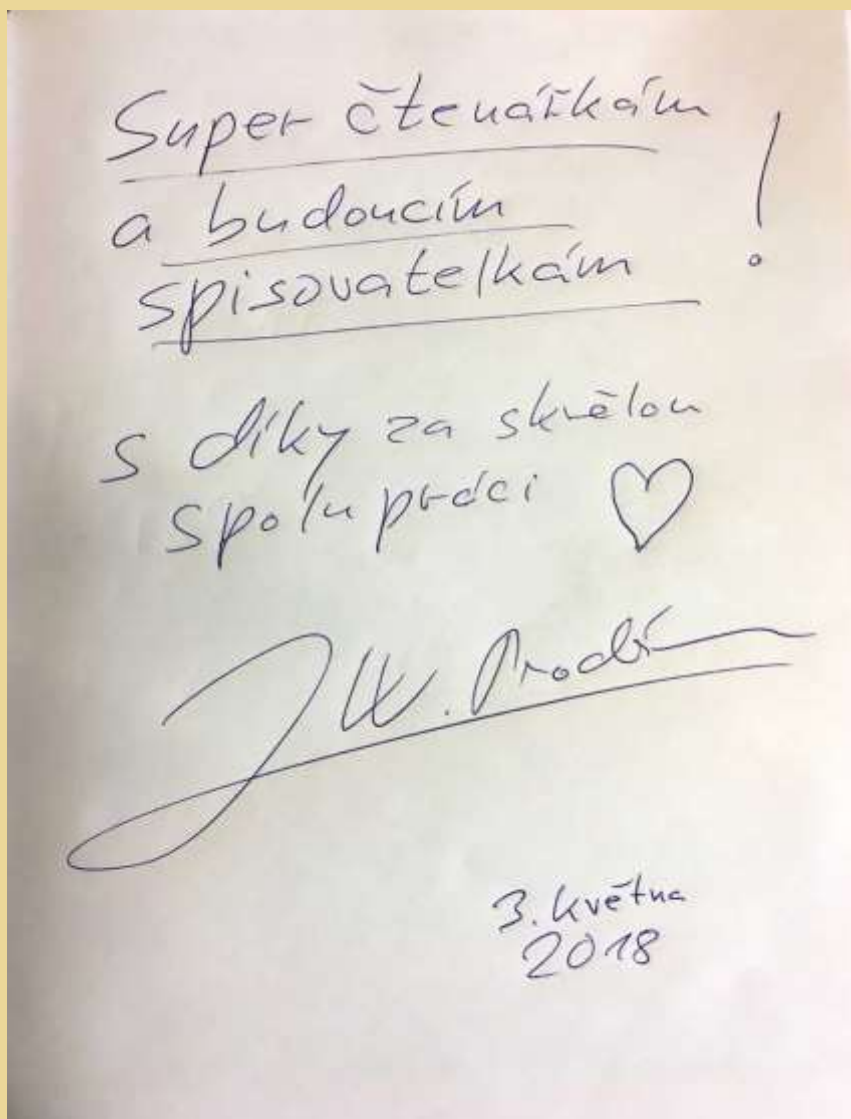 Super čtenářkám
a budoucím
spisovatelkám !
s díky za skvělou
spolupráci
J W.
3. května
2018